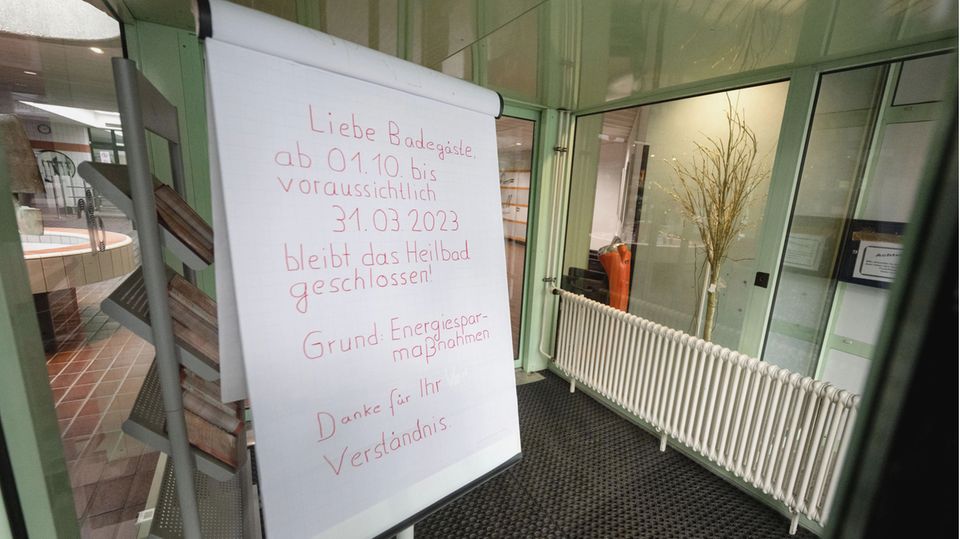 Liebe Badegäste,
ab 01.10. bis
voraussichtlich
31.03.2023
bleibt das Heilbad
geschlossen!
Grund: Energiespar-
maßnahmen
Danke für Ihr
Verständnis.